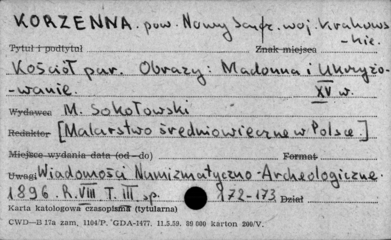 KORZENNA. pow. Nowy Sącz. woj. Krakows-
-kie.
Tytuł i podtytuł Znak miejsca
Kościół par. Obrazy: Madonna i Ukrzyżo-
-wanie. XV w.
Wydawca M. Sokołowski
Redaktor [Malarstwo średniowieczne w Polsce.]
Miejsce wydania data (od – do) Format
Uwagi Wiadomości Numizmatyczno-Archeologiczne.
1896. R.VIII T. III sp. 172-173. Dział
Karta katologowa czasopisma (tytularna)
CWD—B 17a zam. 1104/P. GDA-1477. 11.5.59. 30 000 karton 200/V.